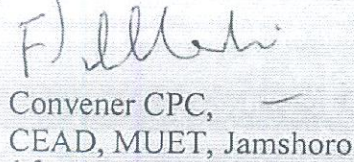 Convener CPC,
CEAD, MUET, Jamshoro